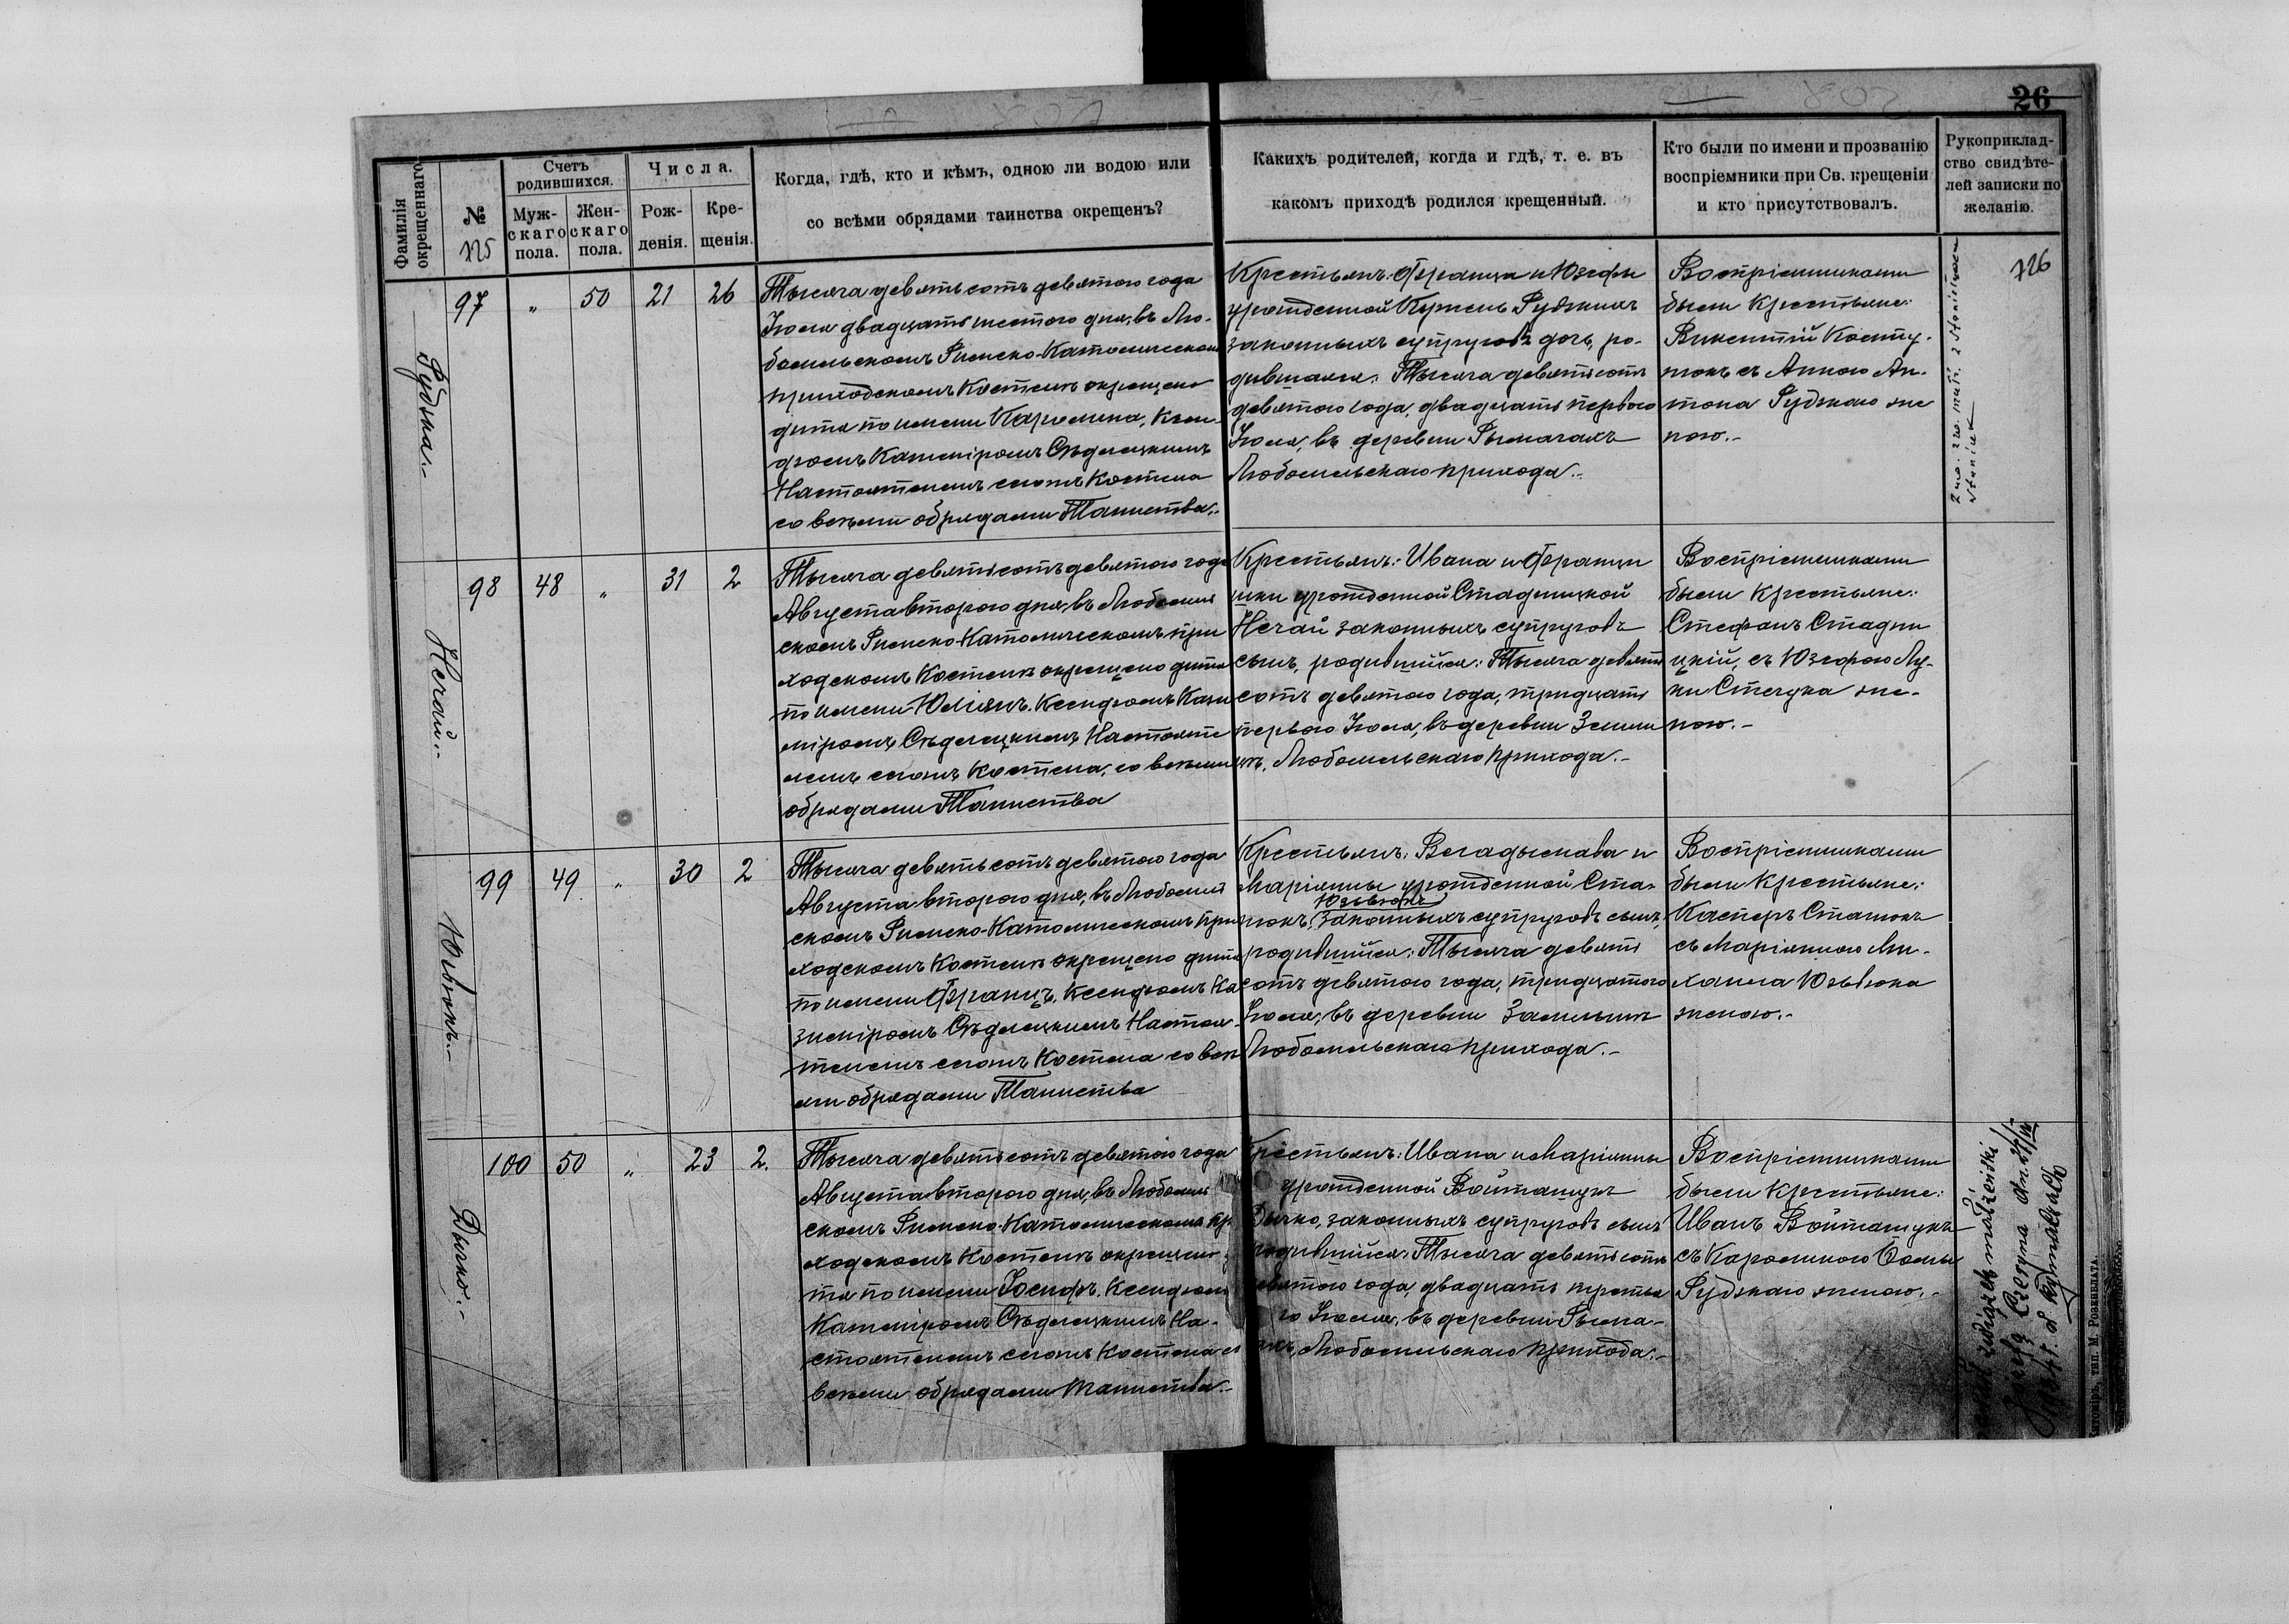 26
Фамилія окрещеннаго
№
Счетъ родившихся.
Мужскаго пола.
Женскаго пола.
Числа.
Рожденія.
Крещенія.
Когда, гдѣ, кто и кѣмъ, одною ли водою или
со всѣми обрядами таинства окрещенъ?
Какихъ родителей, когда и гдѣ, т. е. въ
какомъ приходѣ родился крещенный.
Кто были по имени и прозванію
воспріемники при Св. крещеніи
и кто присутствовалъ.
Рукоприклад-
ство свидѣте-
лей записки по
желанію.
725
726
Рудзка.-
97 " 50 21 26
Тысяча девятьсотъ девятого года
Іюля двадцать шестого дня, въ Лю-
бомльскомъ Римско-Католическомъ
приходскомъ Костелѣ окрещено
дитя по имени Каролина, Ксен-
дзомъ Казиміромъ Сѣдлецкимъ
Настоятелемъ сего-жъ Костела
со всѣми обрядами Таинства.-
Крестьянъ: Франца и Юзефы
урожденной Рудзкихъ
законныхъ супруговъ дочь, ро-
дившаяся: Тысяча девятьсотъ
девятого года, двадцать первого
Іюля, въ деревни Рымачахъ
Любомльскаго прихода.-
Воспріемниками
были Крестьяне:
Викентій Косту-
локъ съ Анною Ан-
тона Рудзкаго же
ною.-
Нечай.-
98 48 " 31 2
Тысяча девятьсотъ девятого года
Августа второго дня, въ Любомль
скомъ Римско-Католическомъ при
ходскомъ Костелѣ окрещено дитя
по имени Юліянъ. Ксендзомъ Кази
міромъ Сѣдлецкимъ Настояте
лемъ сего-жъ Костела, со всѣми
обрядами Таинства
Крестьянъ: Ивана и Францы
шки урожденной Стадницкой
Нечай законныхъ супруговъ
сынъ, родившійся: Тысяча девять
сотъ девятого года, тридцать
первого Іюля, въ деревни Земли
цѣ, Любомльскаго прихода.-
Воспріемниками
были Крестьяне:
Стефанъ Стадни
цкій, съ Юзефою Лу-
ки Стечука же-
ною.-
Юзвюкъ.-
99 49 " 30 2
Тысяча девятьсотъ девятого года
Августа второго дня, въ Любомль
скомъ Римско-Католическомъ При
ходскомъ Костелѣ окрещено дитя
по имени Францъ. Ксендзомъ Ка
зиміромъ Сѣдлецкимъ Настоя-
телемъ сего-жъ Костела со всѣ
ми обрядами Таинства
Крестьянъ: Владыслава и
Маріянны урожденной Ста-
Юзьвюкъ
нюкъ, законныхъ супруговъ сынъ,
родившійся: Тысяча девять
сотъ девятого года, тридцатого
Іюля, въ деревни
Любомльскаго прихода.-
Воспріемниками
были Крестьяне:
Касперъ Станюкъ
съ Маріянною Ми-
хаила Юзьвюка
женою.-
Дычко.-
100 50 " 23 2.
Тысяча девятьсотъ девятого года
Августа второго дня, въ Любомль
скомъ Римско-Католическомъ пр
ходскомъ Костелѣ окрещено
тя по имени Іосифъ. Ксендзомъ
Казиміромъ Сѣдлецкимъ На-
стоятелемъ сего-жъ Костела со
всѣми обрядами Таинства.-
Крестьянъ: Ивана и Маріянны
урожденной Войташукъ
Дычко, законныхъ супруговъ сынъ
родившійся: Тысяча девятьсотъ
девятого года, двадцать третья
го Іюля, въ деревни Рыма-
чахъ, Любомльскаго прихода.-
Воспріемниками
были Крестьяне:
Иванъ Войташукъ
съ Каролиною Ѳомы
Рудзкаго женою.-
związek małżeński